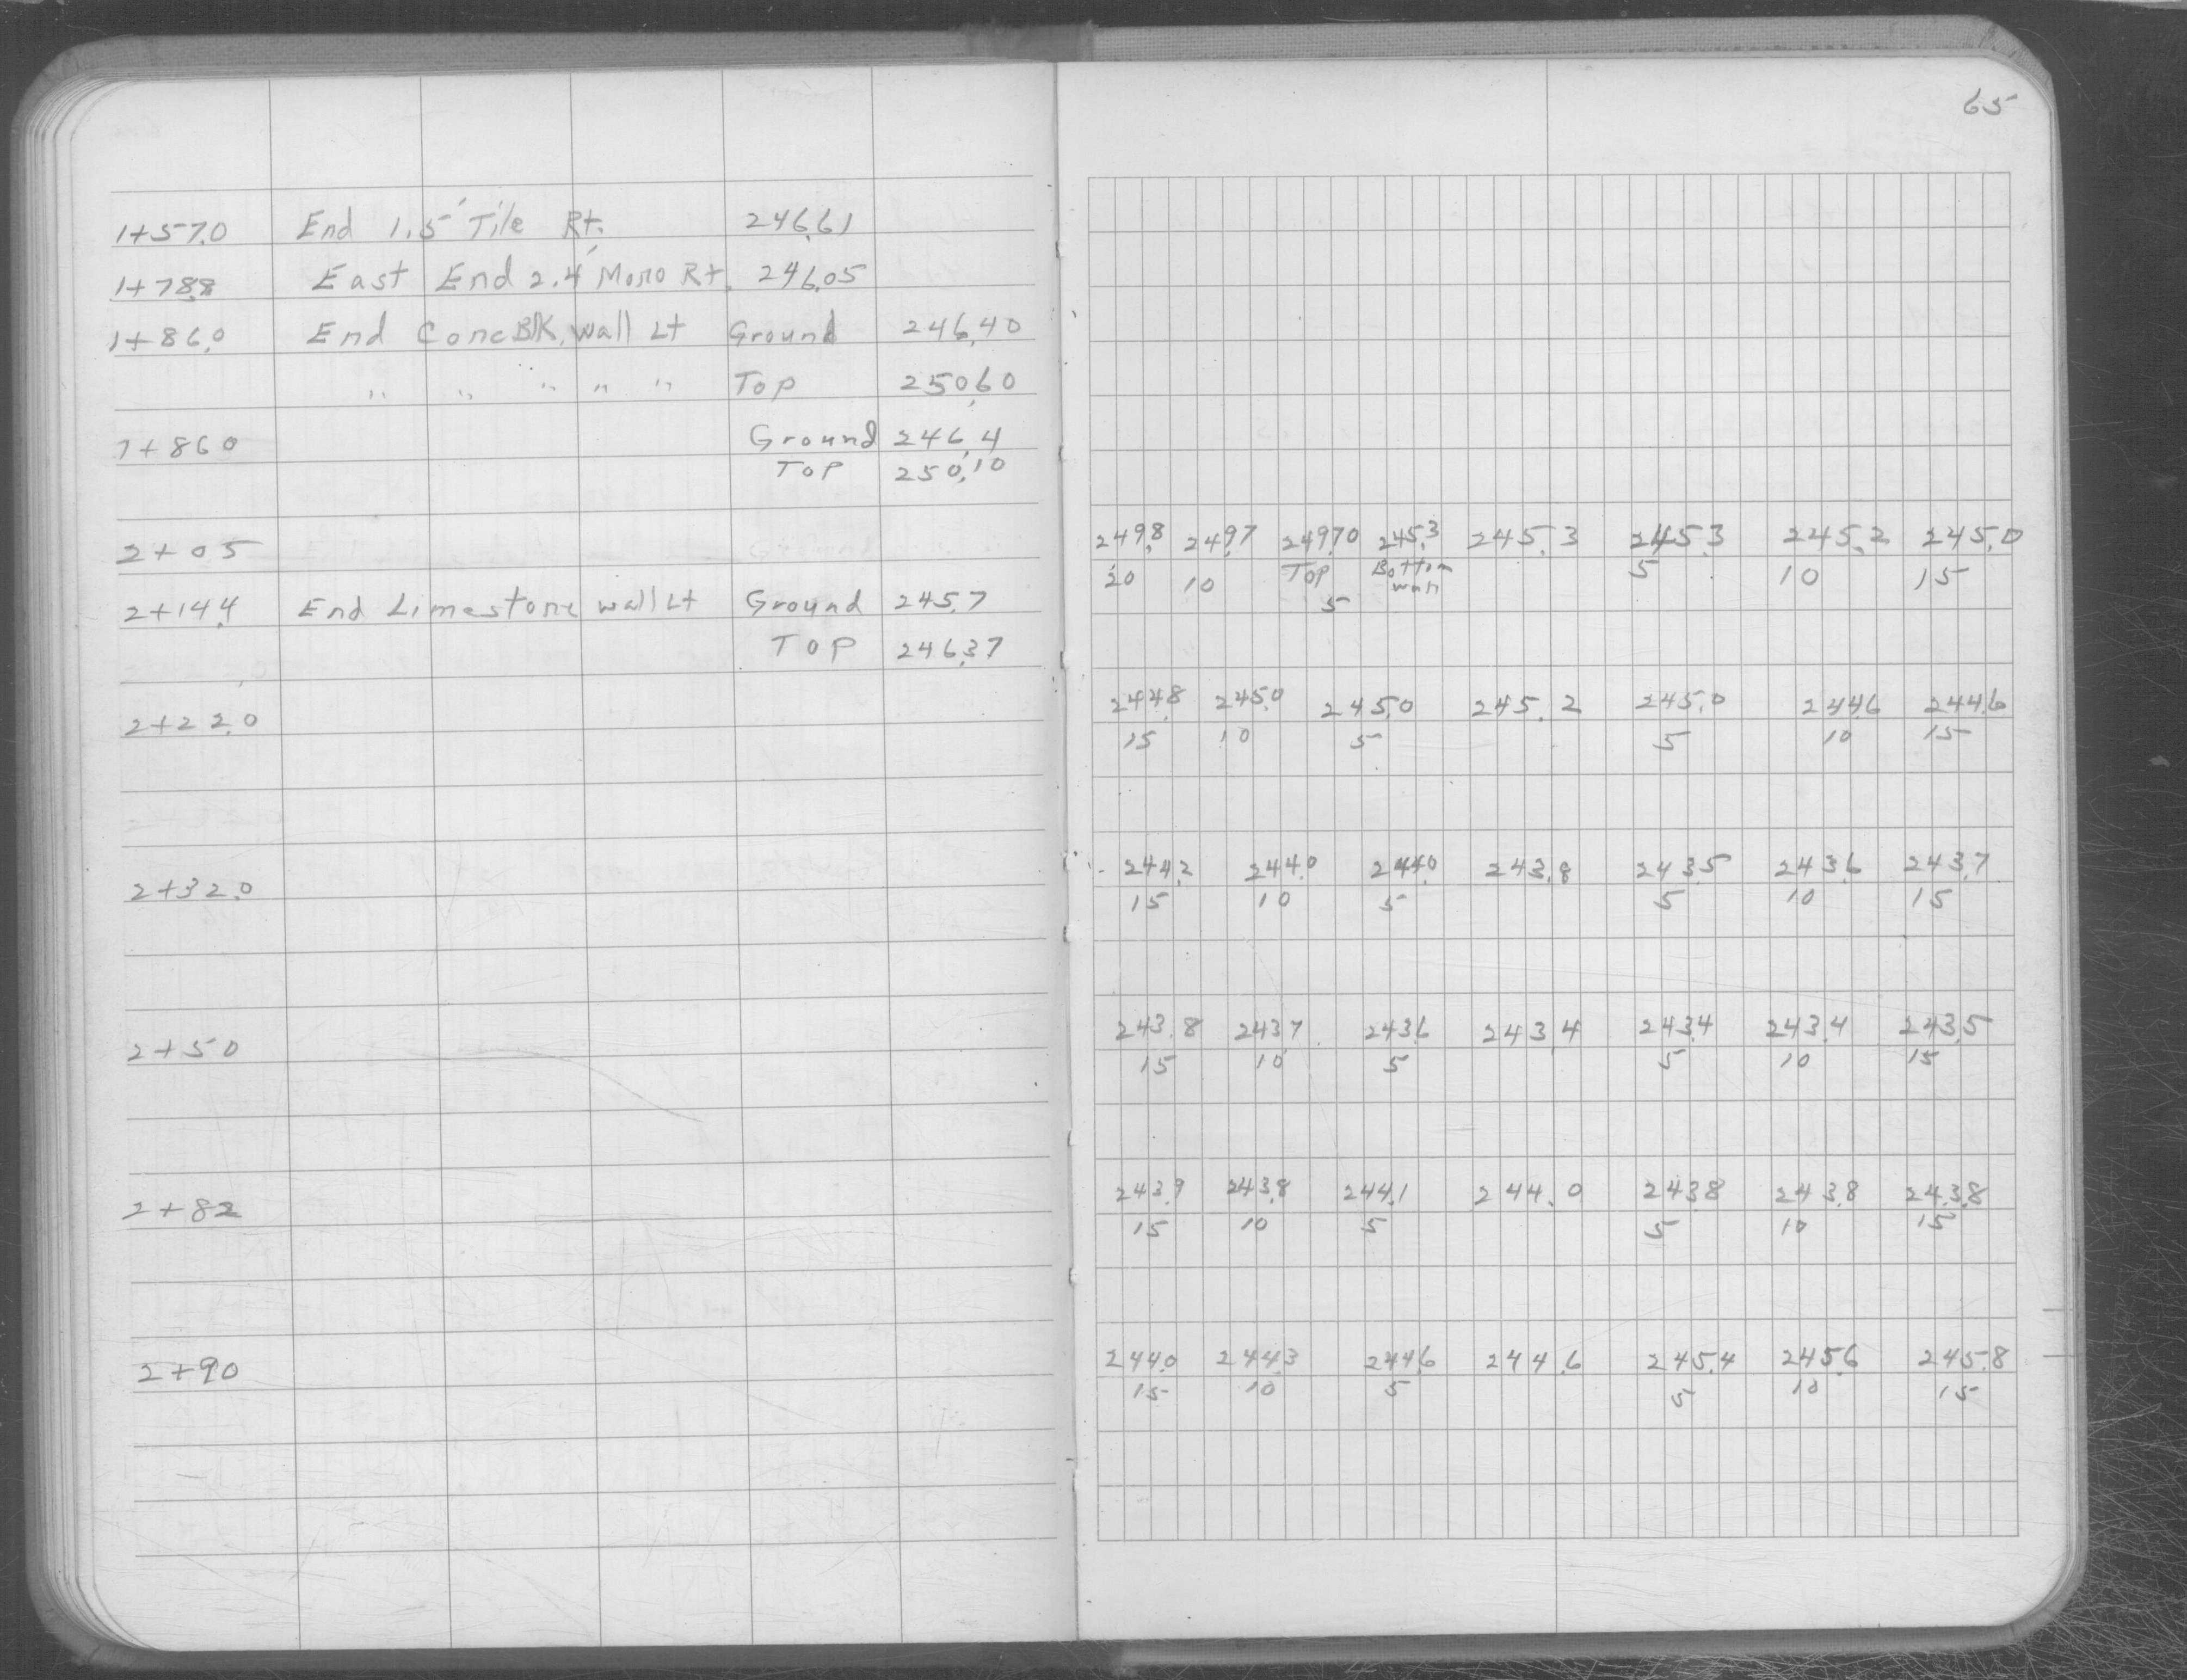 65
1+57.0 End 1.5' Tile Rt. 246.61
1+78.8 East End 2.4' Mono Rt. 246.05
1+86.0 End Conc Blk. Wall Lt Ground 246.40
" " " " " Top 250.60
1+86.0 Ground 246.4
Top 250.10
2+05 249.8 249.7 249.70 245.3 245.3 245.3 245.2 245.0
20 10 Top Bottom 5 10 15
5 wall
2+14.4 End Limestone wall Lt Ground 245.7
Top 246.37
2+22.0 244.8 245.0 245.0 245.2 245.0 244.6 244.6
15 10 5 5 10 15
2+32.0 244.2 244.0 244.0 243.8 243.5 243.6 243.7
15 10 5 5 10 15
2+50 243.8 243.7 243.6 243.4 243.4 243.4 243.5
15 10 5 5 10 15
2+82 243.9 243.8 244.1 244.0 243.8 243.8 243.8
15 10 5 5 10 15
2+90 244.0 244.3 244.6 244.6 245.4 245.6 245.8
15 10 5 5 10 15